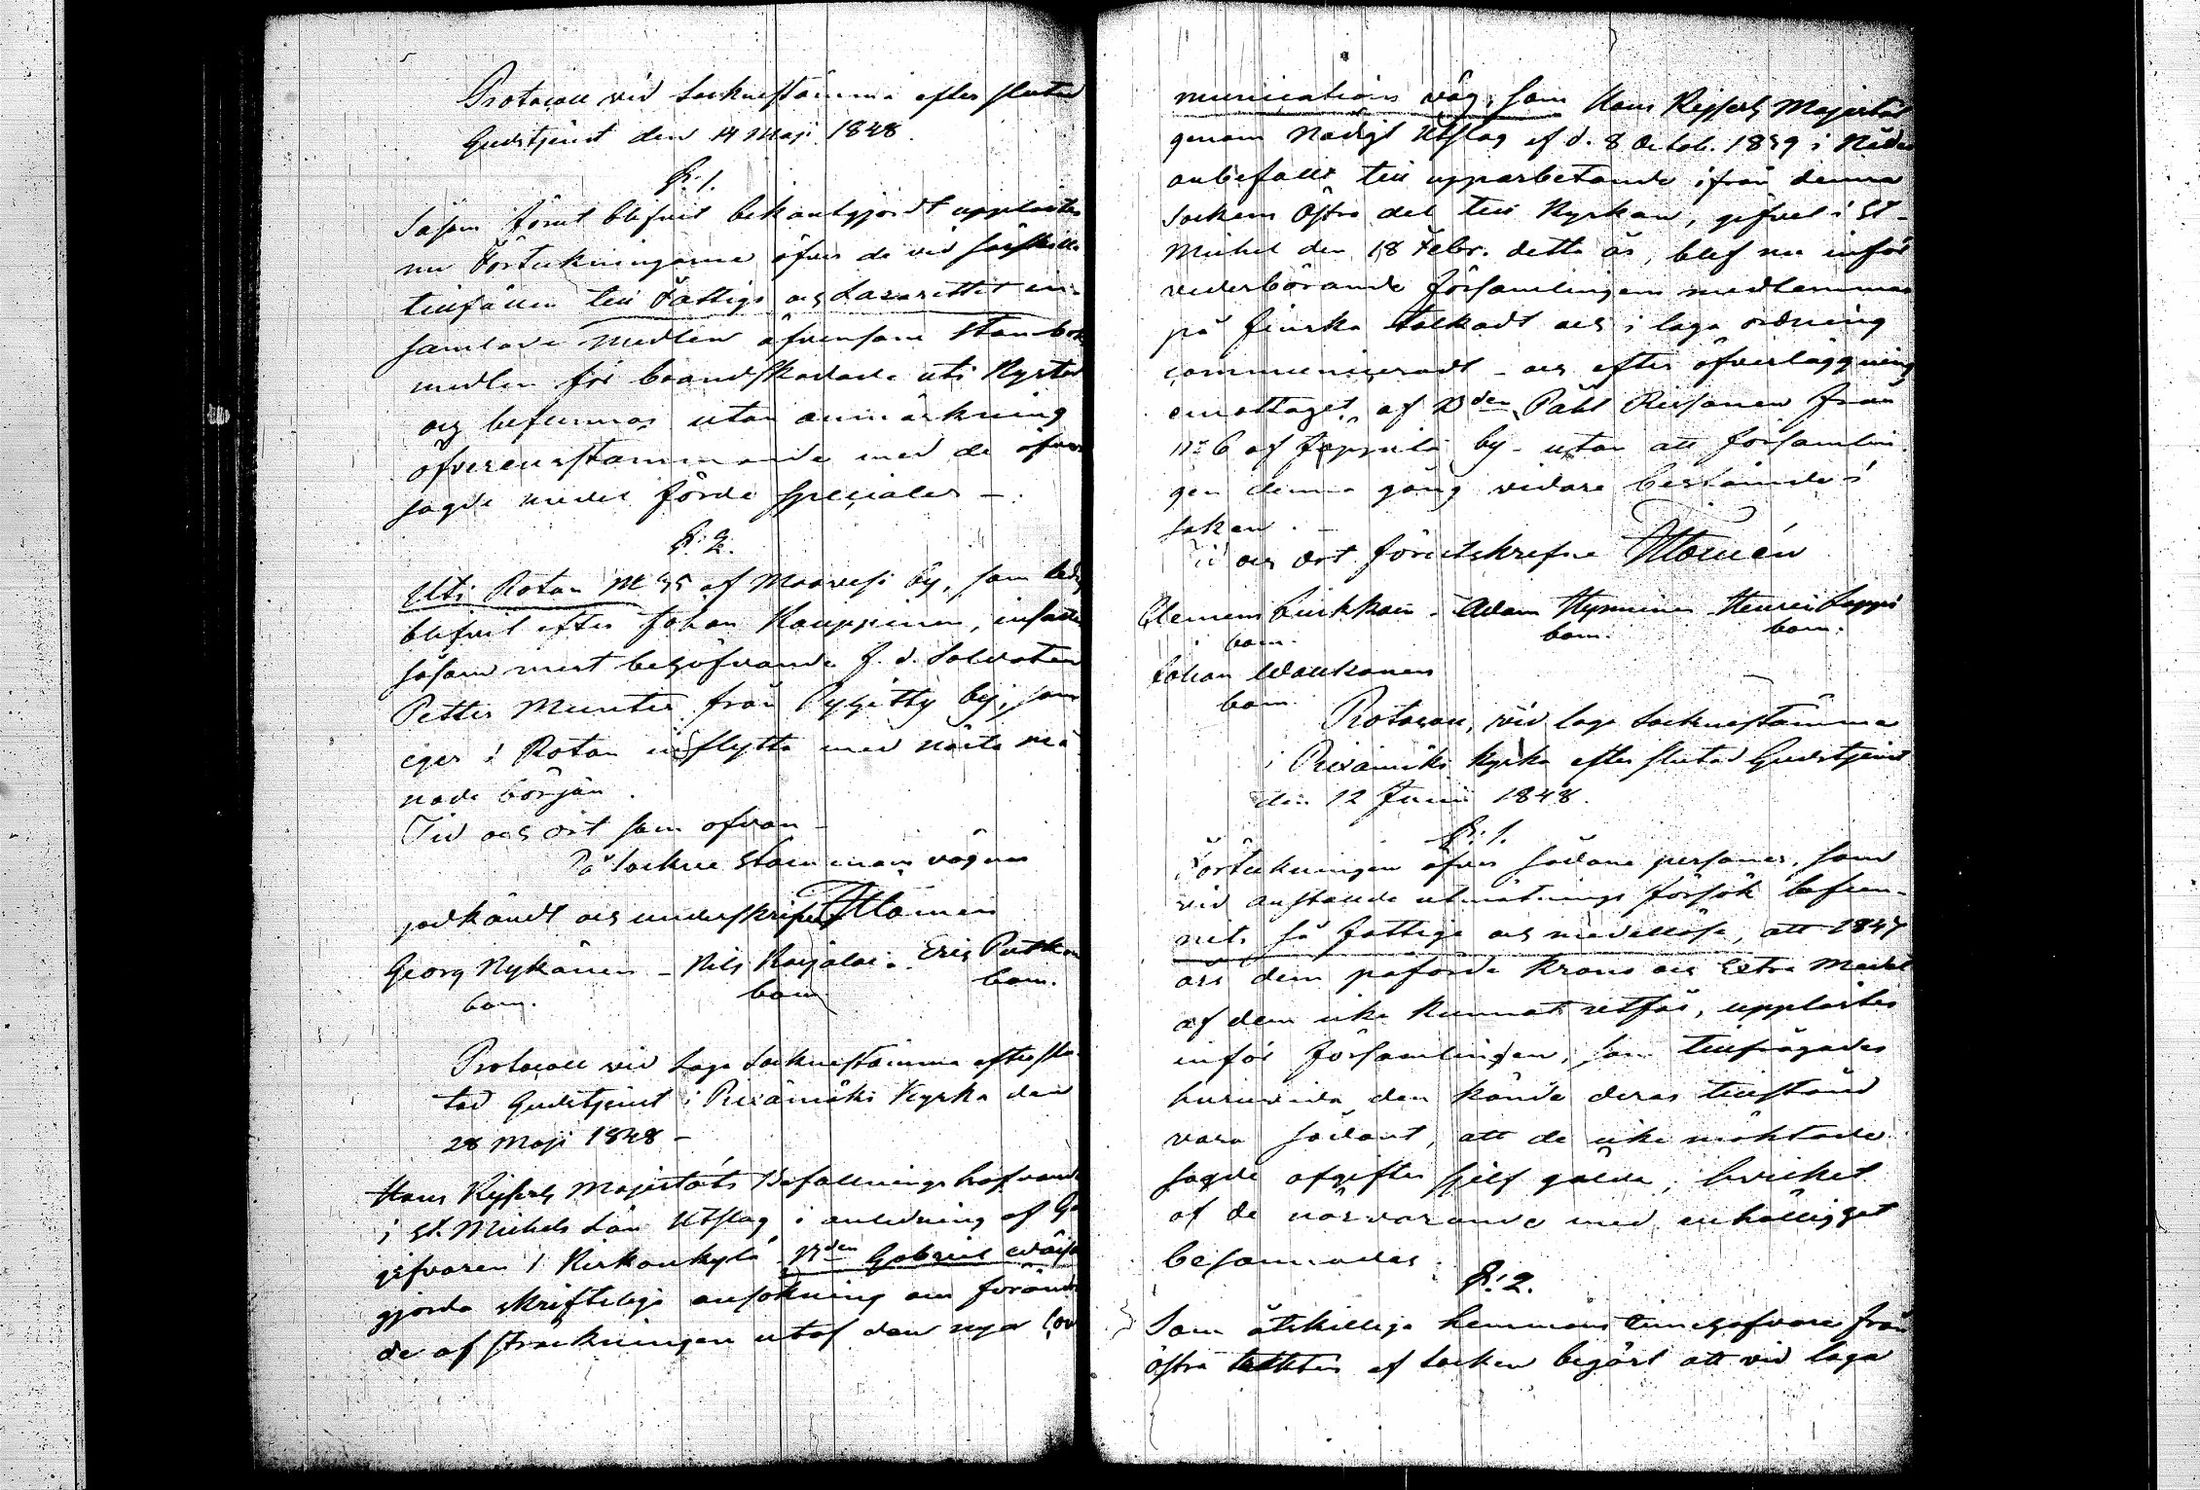 Protocoll vid Socknestämma efter slutad
Gudstjenst den 14 Maji 1848.
§. 1.
Såsom förut blifvit bekantgjordt upplästes
nu Förtekningarne öfver de vid särskilta
tillfällen till Fattige och Lazarettet in-
samlade medlen äfvensom Stambok
medlen för brandskadade uti Nystad
och befunnos utan anmärkning
öfverensstämmande med de öfver
sagde medel förde specialer –.
§. 2.
Uti Rotan № 35 af Maavesi by, som ledig
blifvit efter Johan Kauppinen, insattes
såsom mest behöfvande f. d. Soldaten
Petter Munter från Pyhitty by, som
eger i Rotan inflytta med nästa må
nads början.
Tid och ort som ofvan –
På Sockne Stämmans vägnar
godkändt och underskrifvet
Georg Nykänen – Nils Karjalai. Eric Putkon
bom. bom bom.
Protocoll vid Laga Socknestämma efter slu-
tad Gudstjenst i Piexämäki Kyrka den
28 Maji 1848 –
Hans Kejserl Majestäts Befallningshafvande
i St. Michels Län Utslag i anledning af Gä
gifvaren i Kirkonkylä Bden Gabriel
gjorda skriftliga ansökning om förändra
de af sträckningen utaf den nya Com
munications väg, som Hans Kejserl Majestät
genom Nådigt Utslag af d. 8 Octob. 1839 i Nåder
anbefallt till upparbetande ifrån denna
Sockens östra del till Kyrkan, gifvet i St-
Michel den 18 Febr. detta år, blef nu inför
vederbörande församlingens medlemmar
på finska tolkadt och i laga ordning
communiceradt – och efter öfverläggning
emottaget af Bden Påhl Rissanen från
№ 6 af Jäppilä by – utan att församlin
gen denna gång vidare bestämde i
saken. –
Tid och ort förutskrefne
Clemens – Adam Hyvninen Henric Lappi
bom. bom. bom.
Johan Waukonen
bom.
Protocoll, vid laga Socknestämma
i Piexämäki Kyrka efter slutad Gudstjenst
den 12 Junii 1848.
§. 1.
Förtekningen öfver sådane personer, som
vid anstalde utmätnings försök befun-
nits så fattige och medellöse, att 1847
års dem påförde Krono och Extra Medel
af dem icke kunnat utfås, upplästes
inför församlingen, som tillfrågades
huruvida den kände deras tillstånd
vara sådant, att de icke mäktade
sagde afgifter sjelf gälda; hvilket
af de närvarande med enhällighet
besannades.
§. 2.
Som åtskillige hemmans innehafvare från
östra trakten af Socken begärt att vid laga